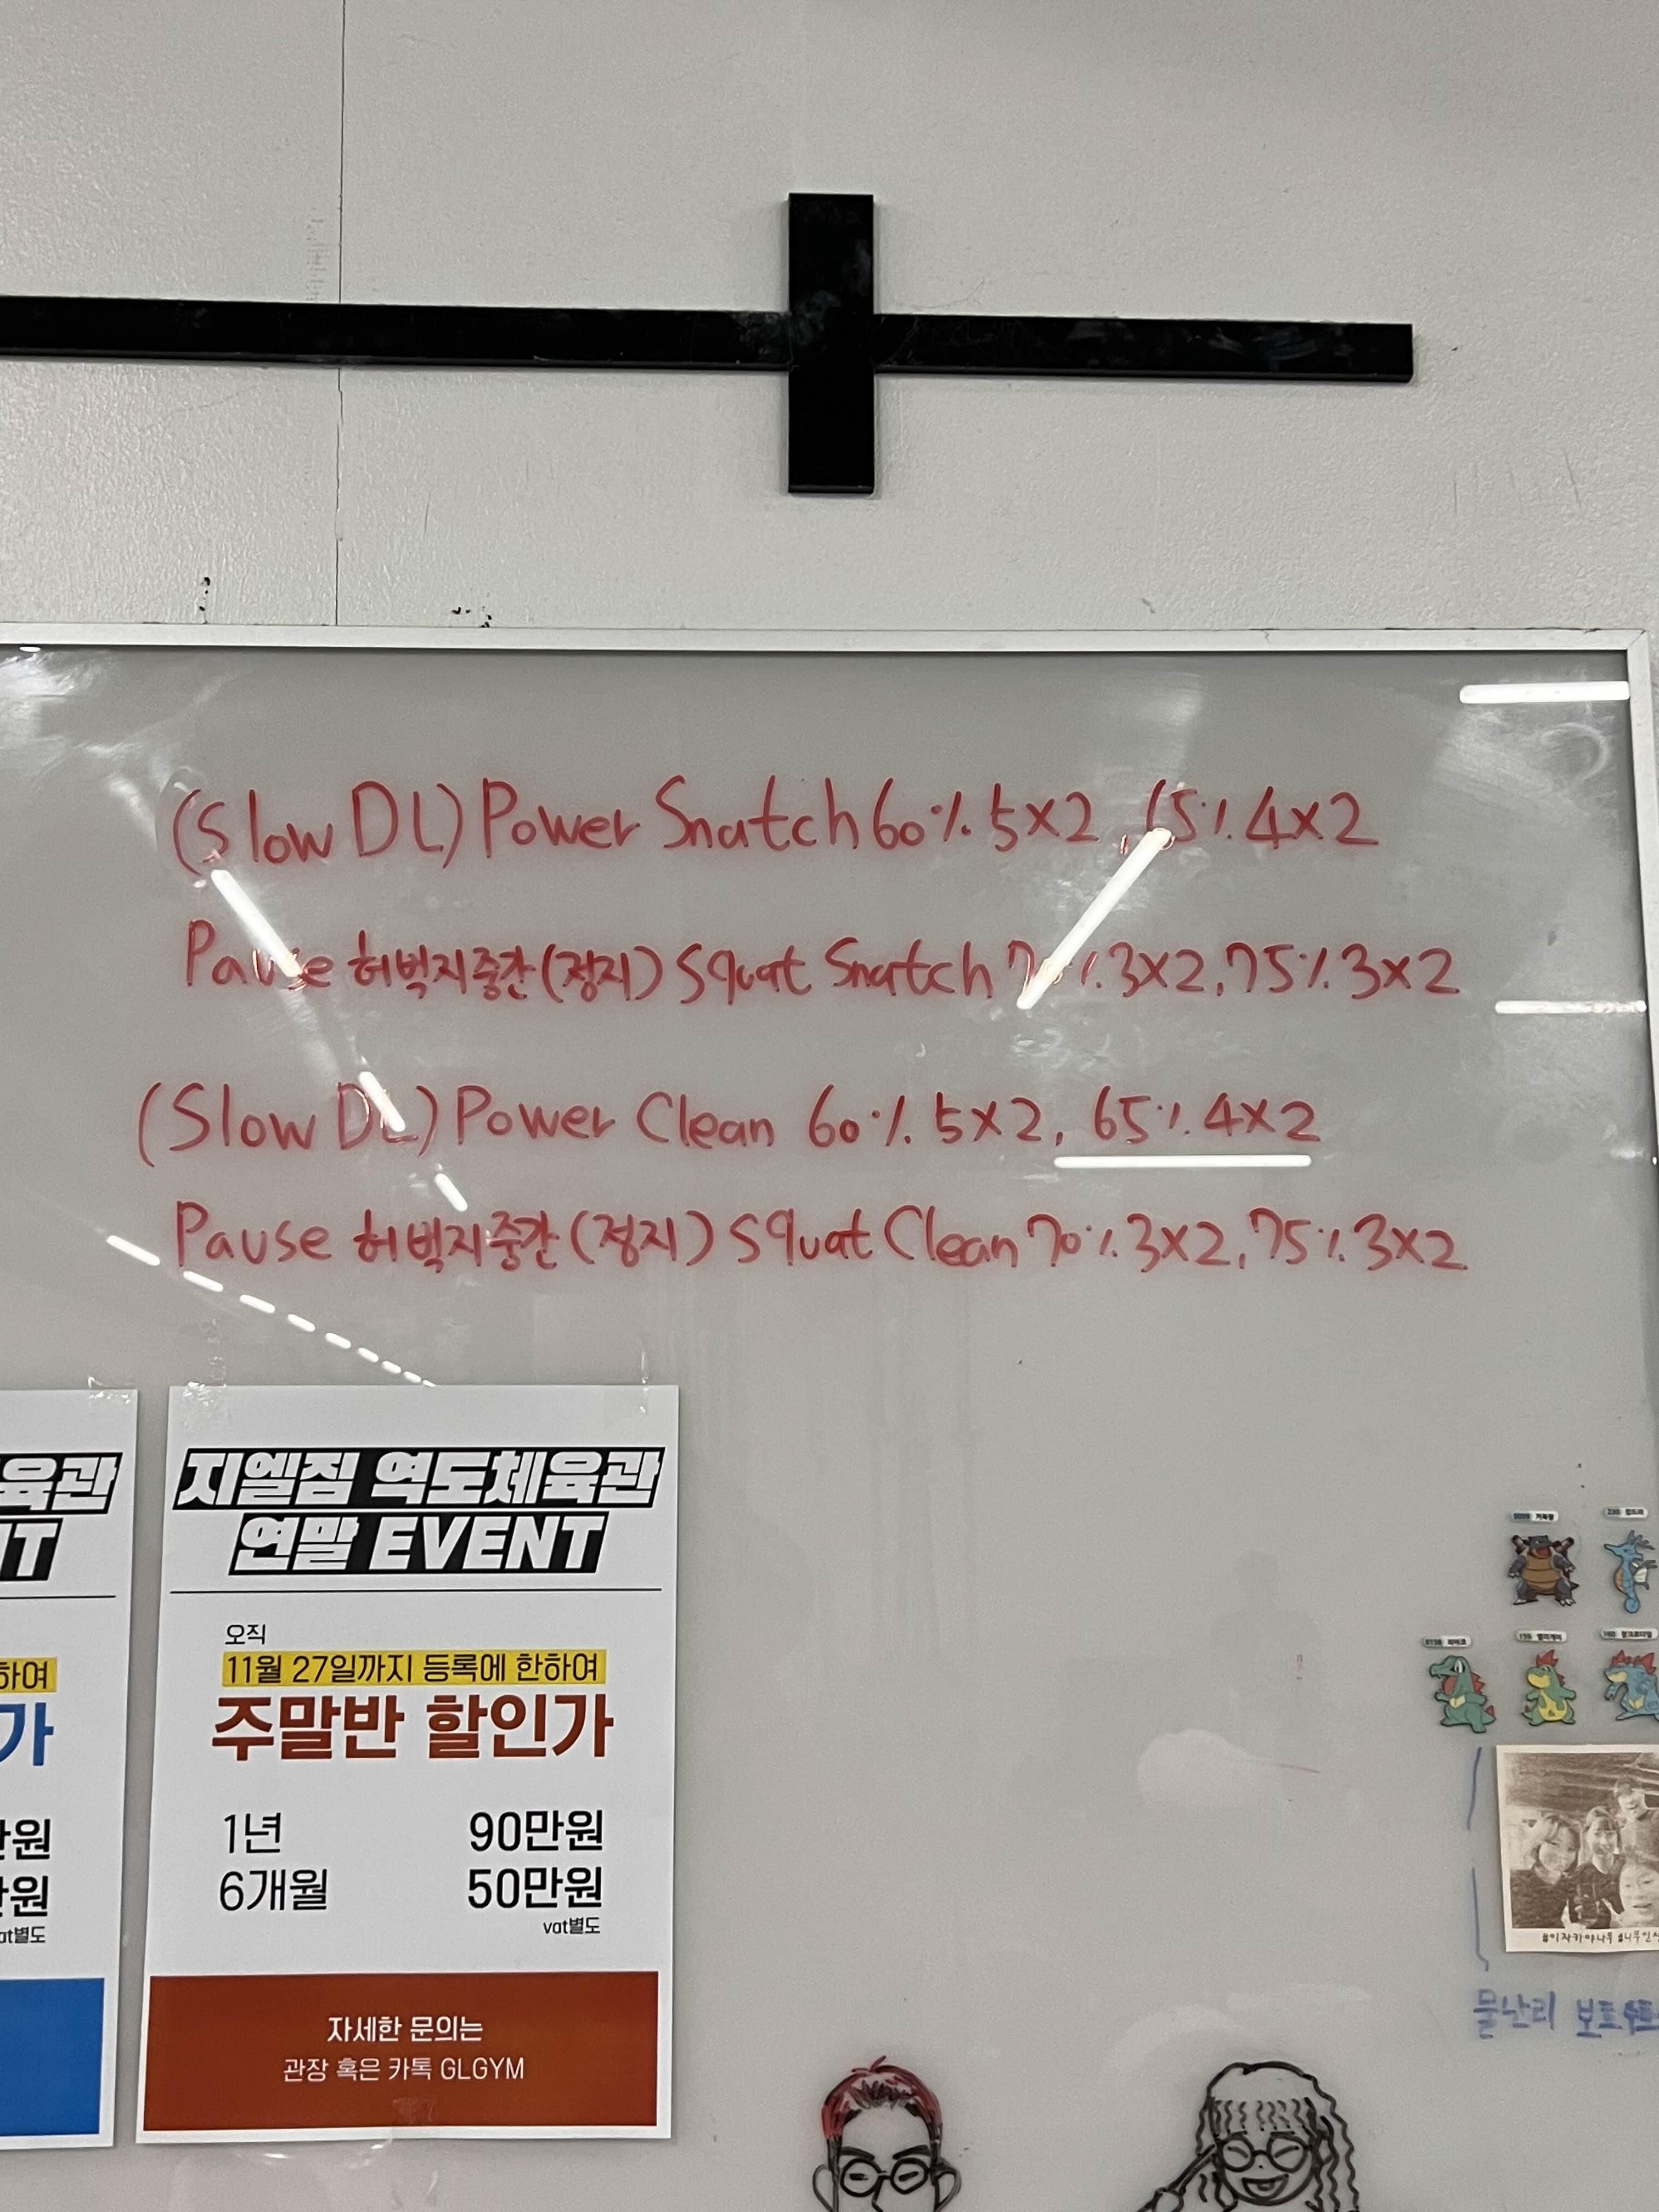 (Slow DL) Power Snatch 60% 5×2, 65% 4×2
Pause 허벅지중간(정지) Squat Snatch 3×2, 75% 3×2
(Slow DL) Power Clean 60% 5×2, 65% 4×2
Pause 허벅지중간(정지) Squat Clean 70% 3×2, 75% 3×2
육관
하여
가
만원
만원
vat별도
지엘짐 역도체육관
연말 EVENT
오직
11월 27일까지 등록에 한하여
주말반 할인가
1년 90만원
6개월 50만원
vat별도
자세한 문의는
관장 혹은 카톡 GLGYM
거북왕
킹드라
리아코
엘리게이
장크로다일
#이자카야나무
물난리